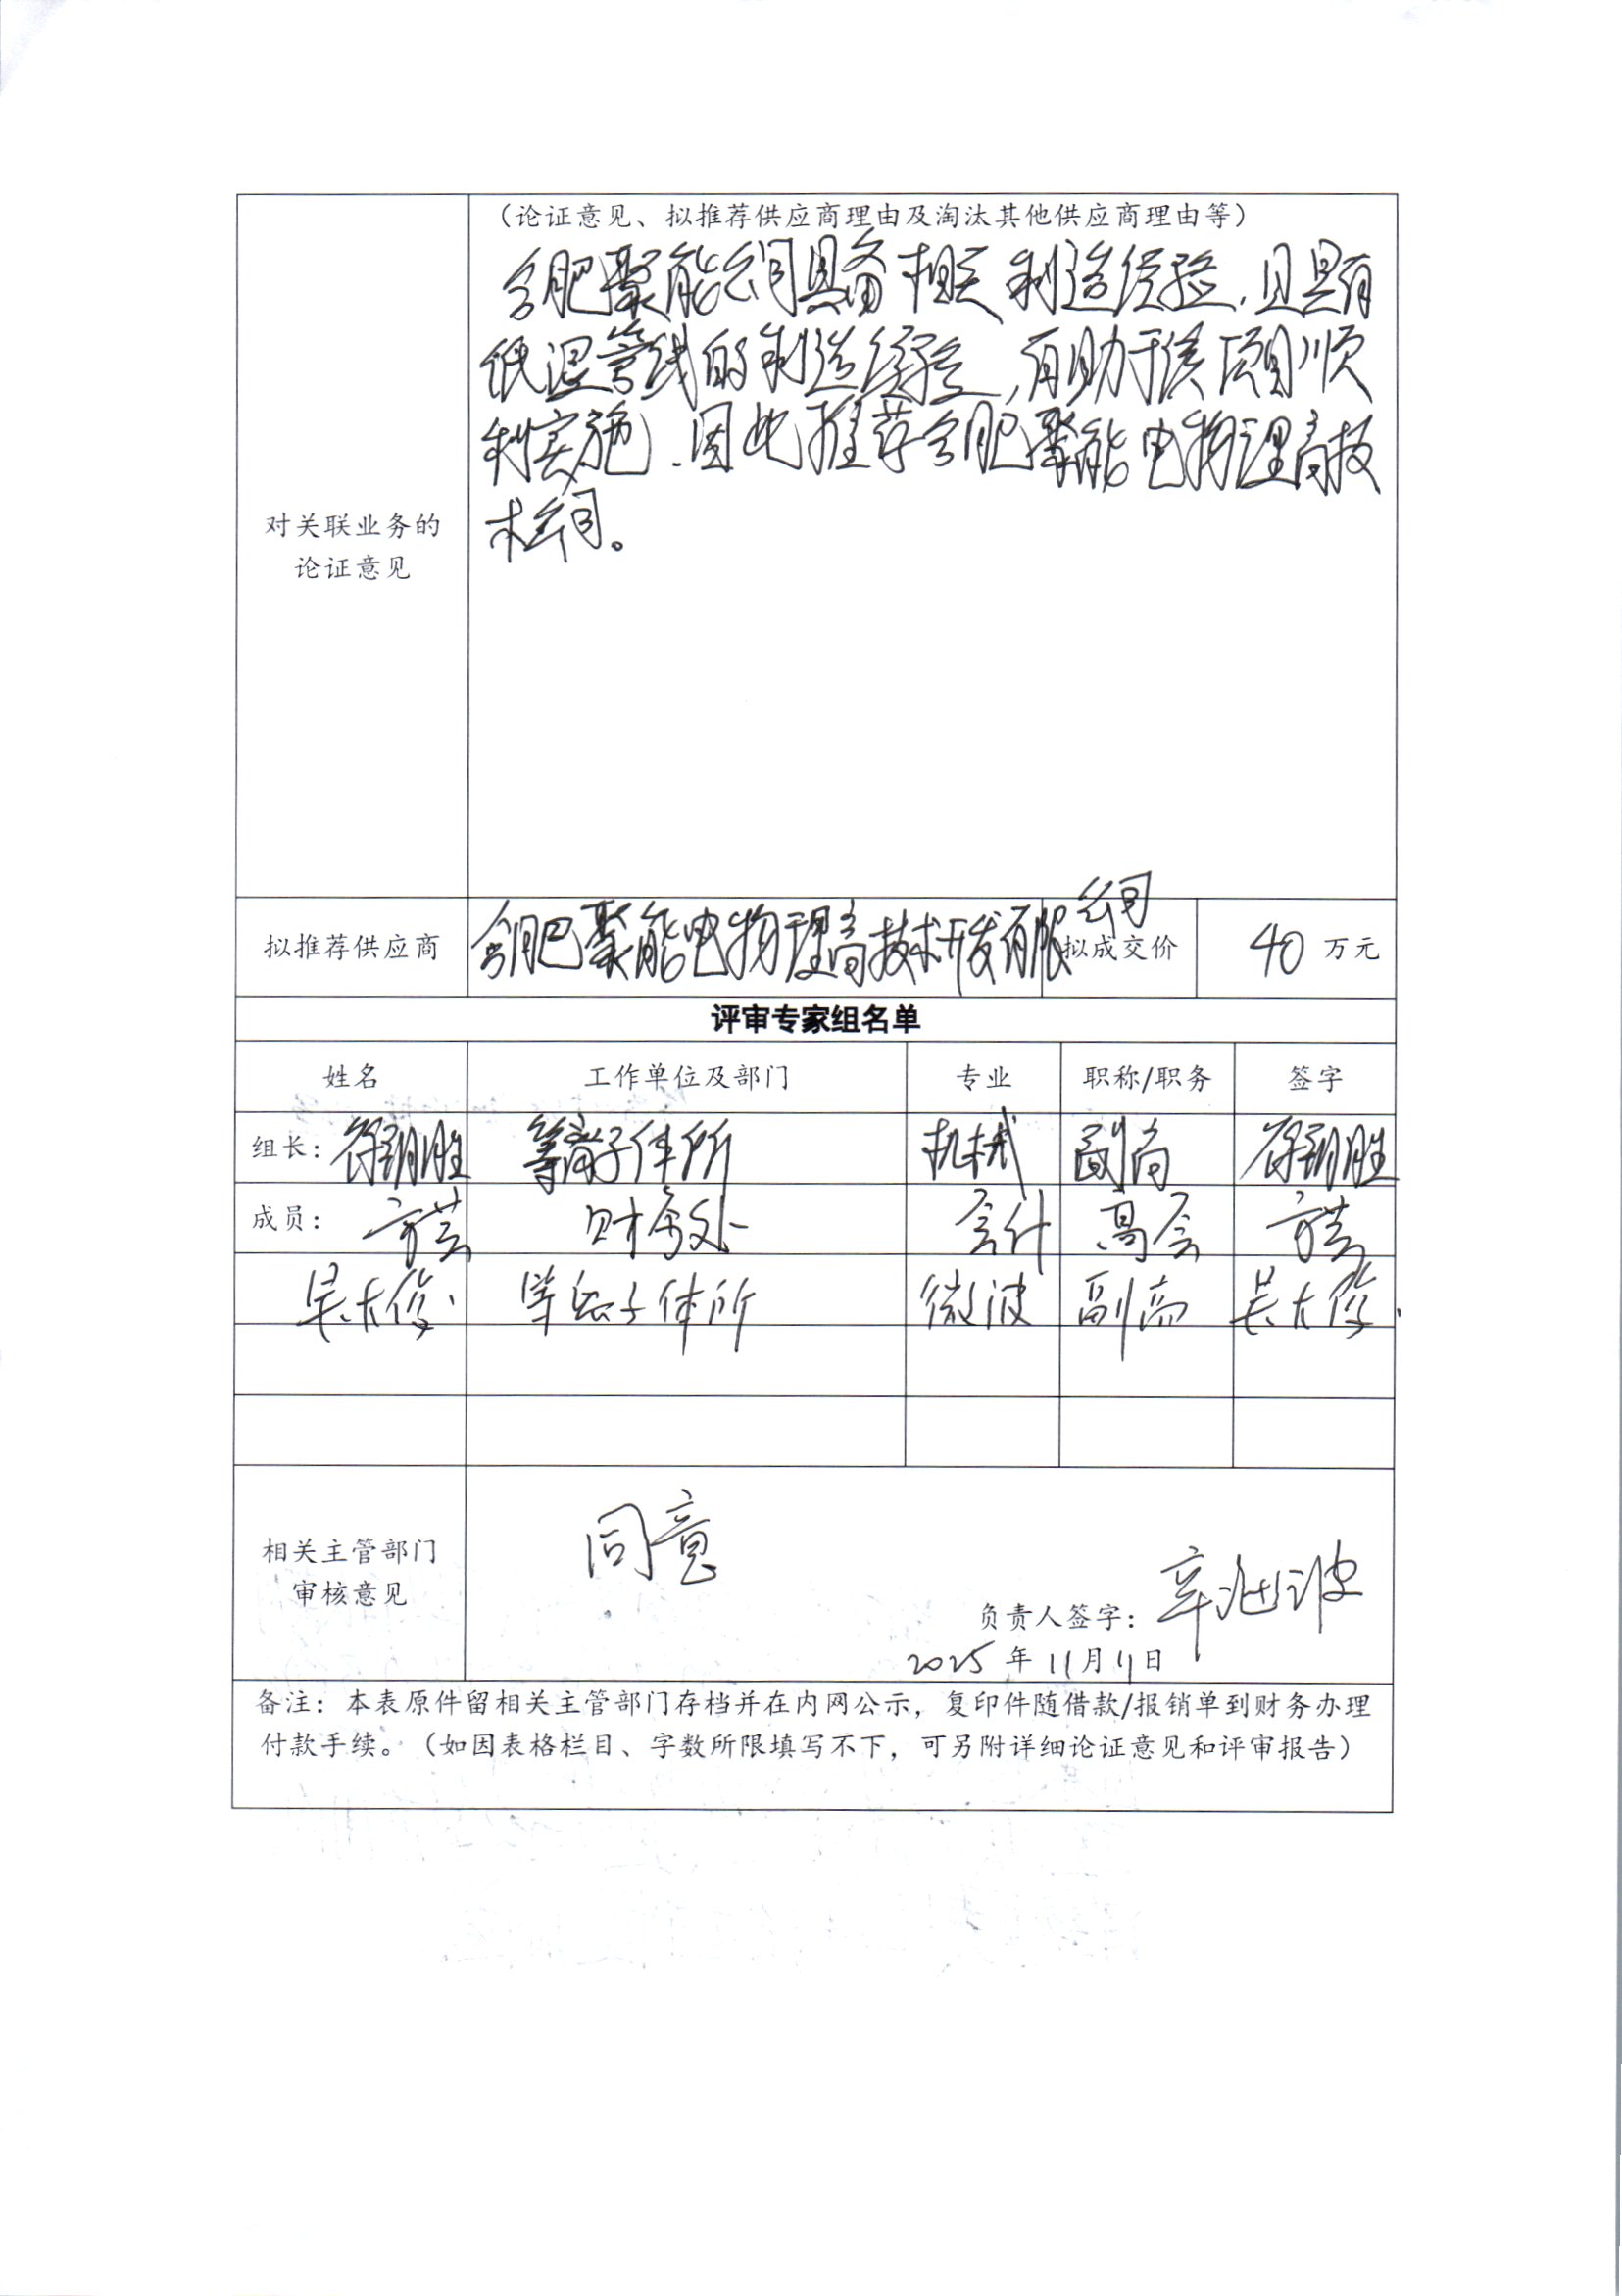 （论证意见、拟推荐供应商理由及淘汰其他供应商理由等）
合肥聚能公司具备相关制造经验，且具有
低温管线的制造经验，有助于该项目顺
利实施，因此推荐合肥聚能电物理高技
术公司。
对关联业务的
论证意见
公司
拟推荐供应商 合肥聚能电物理高技术开发有限 拟成交价 40 万元
评审专家组名单
姓名 工作单位及部门 专业 职称/职务 签字
组长： 等离子体所 机械 副高
成员： 方芸 财务处 会计 高会 方芸
吴大俊 等离子体所 微波 副高 吴大俊
同意
相关主管部门
审核意见
负责人签字：
2025 年 11 月 11 日
备注：本表原件留相关主管部门存档并在内网公示，复印件随借款/报销单到财务办理
付款手续。（如因表格栏目、字数所限填写不下，可另附详细论证意见和评审报告）